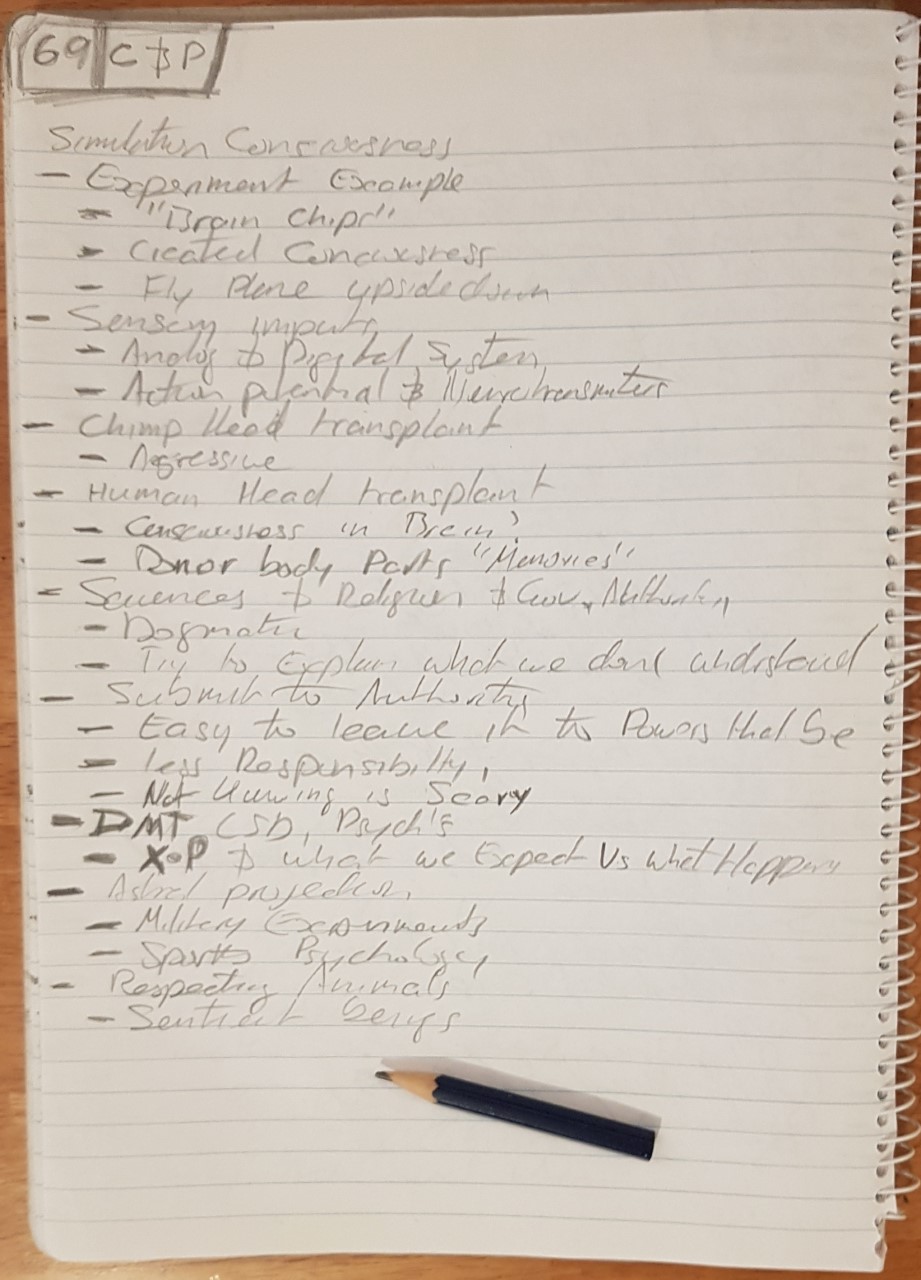 69 C & P
Simulation Conciousness
- Experiment Example
- "Brain Chips"
- Created Conciousness
- Fly Plane upsidedown
- Sensory inputs
- Analog & Digital System
- Action potential & Neurotransmitters
- Chimp Head transplant
- Agressive
- Human Head transplant
- Conciousness in Brain?
- Donor body Parts "Memories"
- Sciences & Religion & Gov, Authority
- Dogmatic
- Try to Explain what we dont understand
- Submit to Authority
- Easy to leave it to Powers that be
- less Responsibility,
- Not Knowing is Scary
- DMT LSD, Psych's
- X.P & what we Expect Vs what Happens
- Astral projection,
- Military Experiments
- Sports Psychology
- Respecting Animals
- Sentient beings